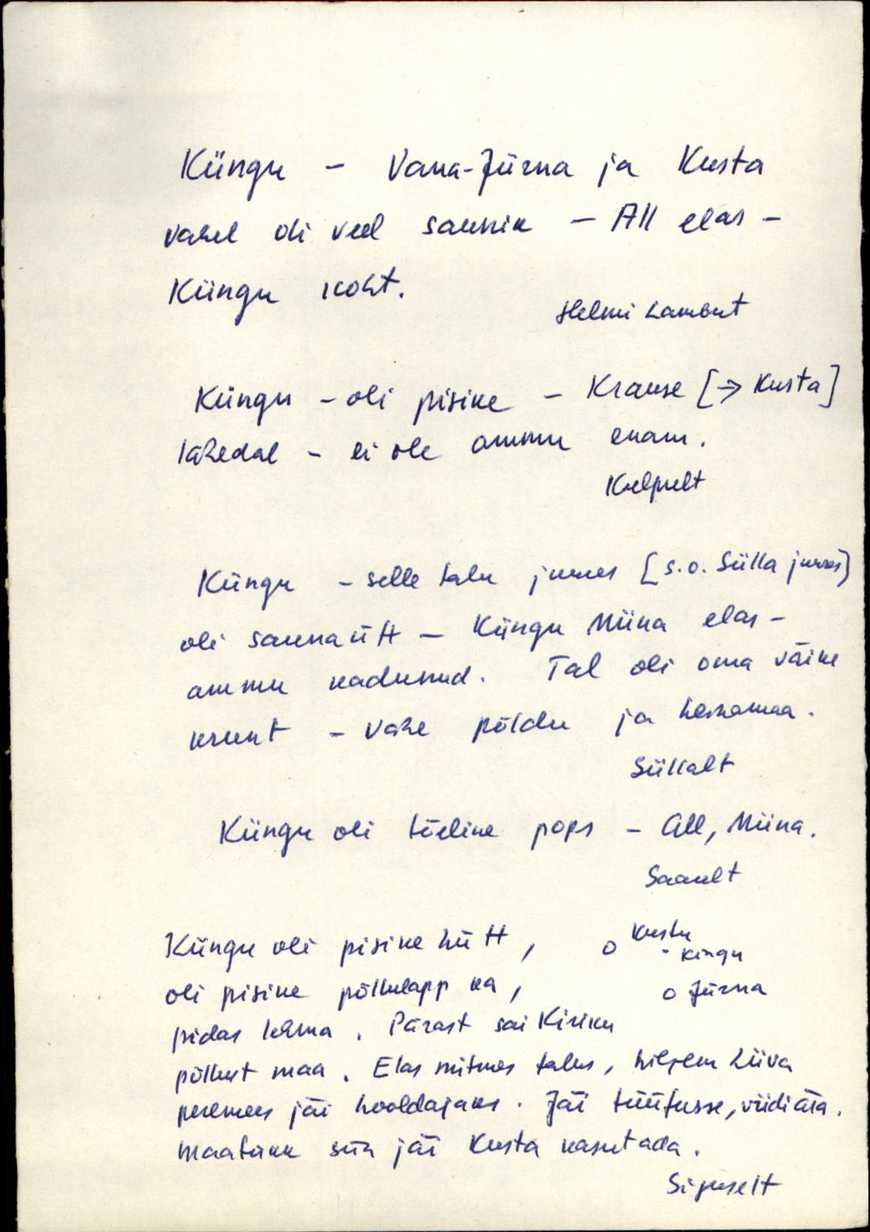 Küngu – Vana-Jürna ja Kusta
vahel oli veel saunik – All elas –
Küngu koht.
Helmi Lambut
Küngu – oli pisike – Krause [→ Kusta]
lähedal – ei ole ammu enam.
Kulpult
Küngu – selle talu juures [s.o. Sülla juures]
oli saunaütt – Küngu Miina elas –
ammu kadunud. Tal oli oma väike
krunt – vähe põldu ja heinamaa.
Süllalt
Küngu oli tüeline pops – All, Miina.
Saarelt
Küngu oli pisike hütt,
o Kustu
- Küngu
oli pisike põllulapp ka,
o Jürna
pidas lehma. Pärast sai Kiriku
põllust maa. Elas mitmes talus, hiljem Liiva
peremees jäi hooldajaks. Jäi tüüfusse, viidi ära.
Maatükk siin jäi Kusta kasutada.
Siguselt